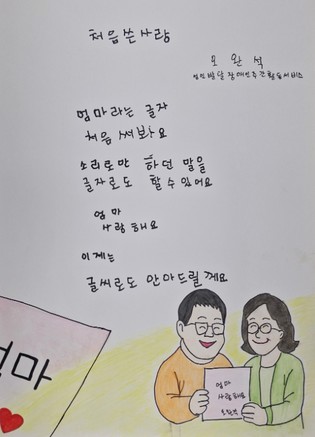 처음쓴사랑
오완석
성인발달장애인주간활동서비스
엄마라는 글자
처음 써봐요
소리로만 하던 말을
글자로도 할 수 있어요
엄마
사랑해요
이제는
글씨로도 안아드릴께요
엄마
엄마
사랑해요
오완석